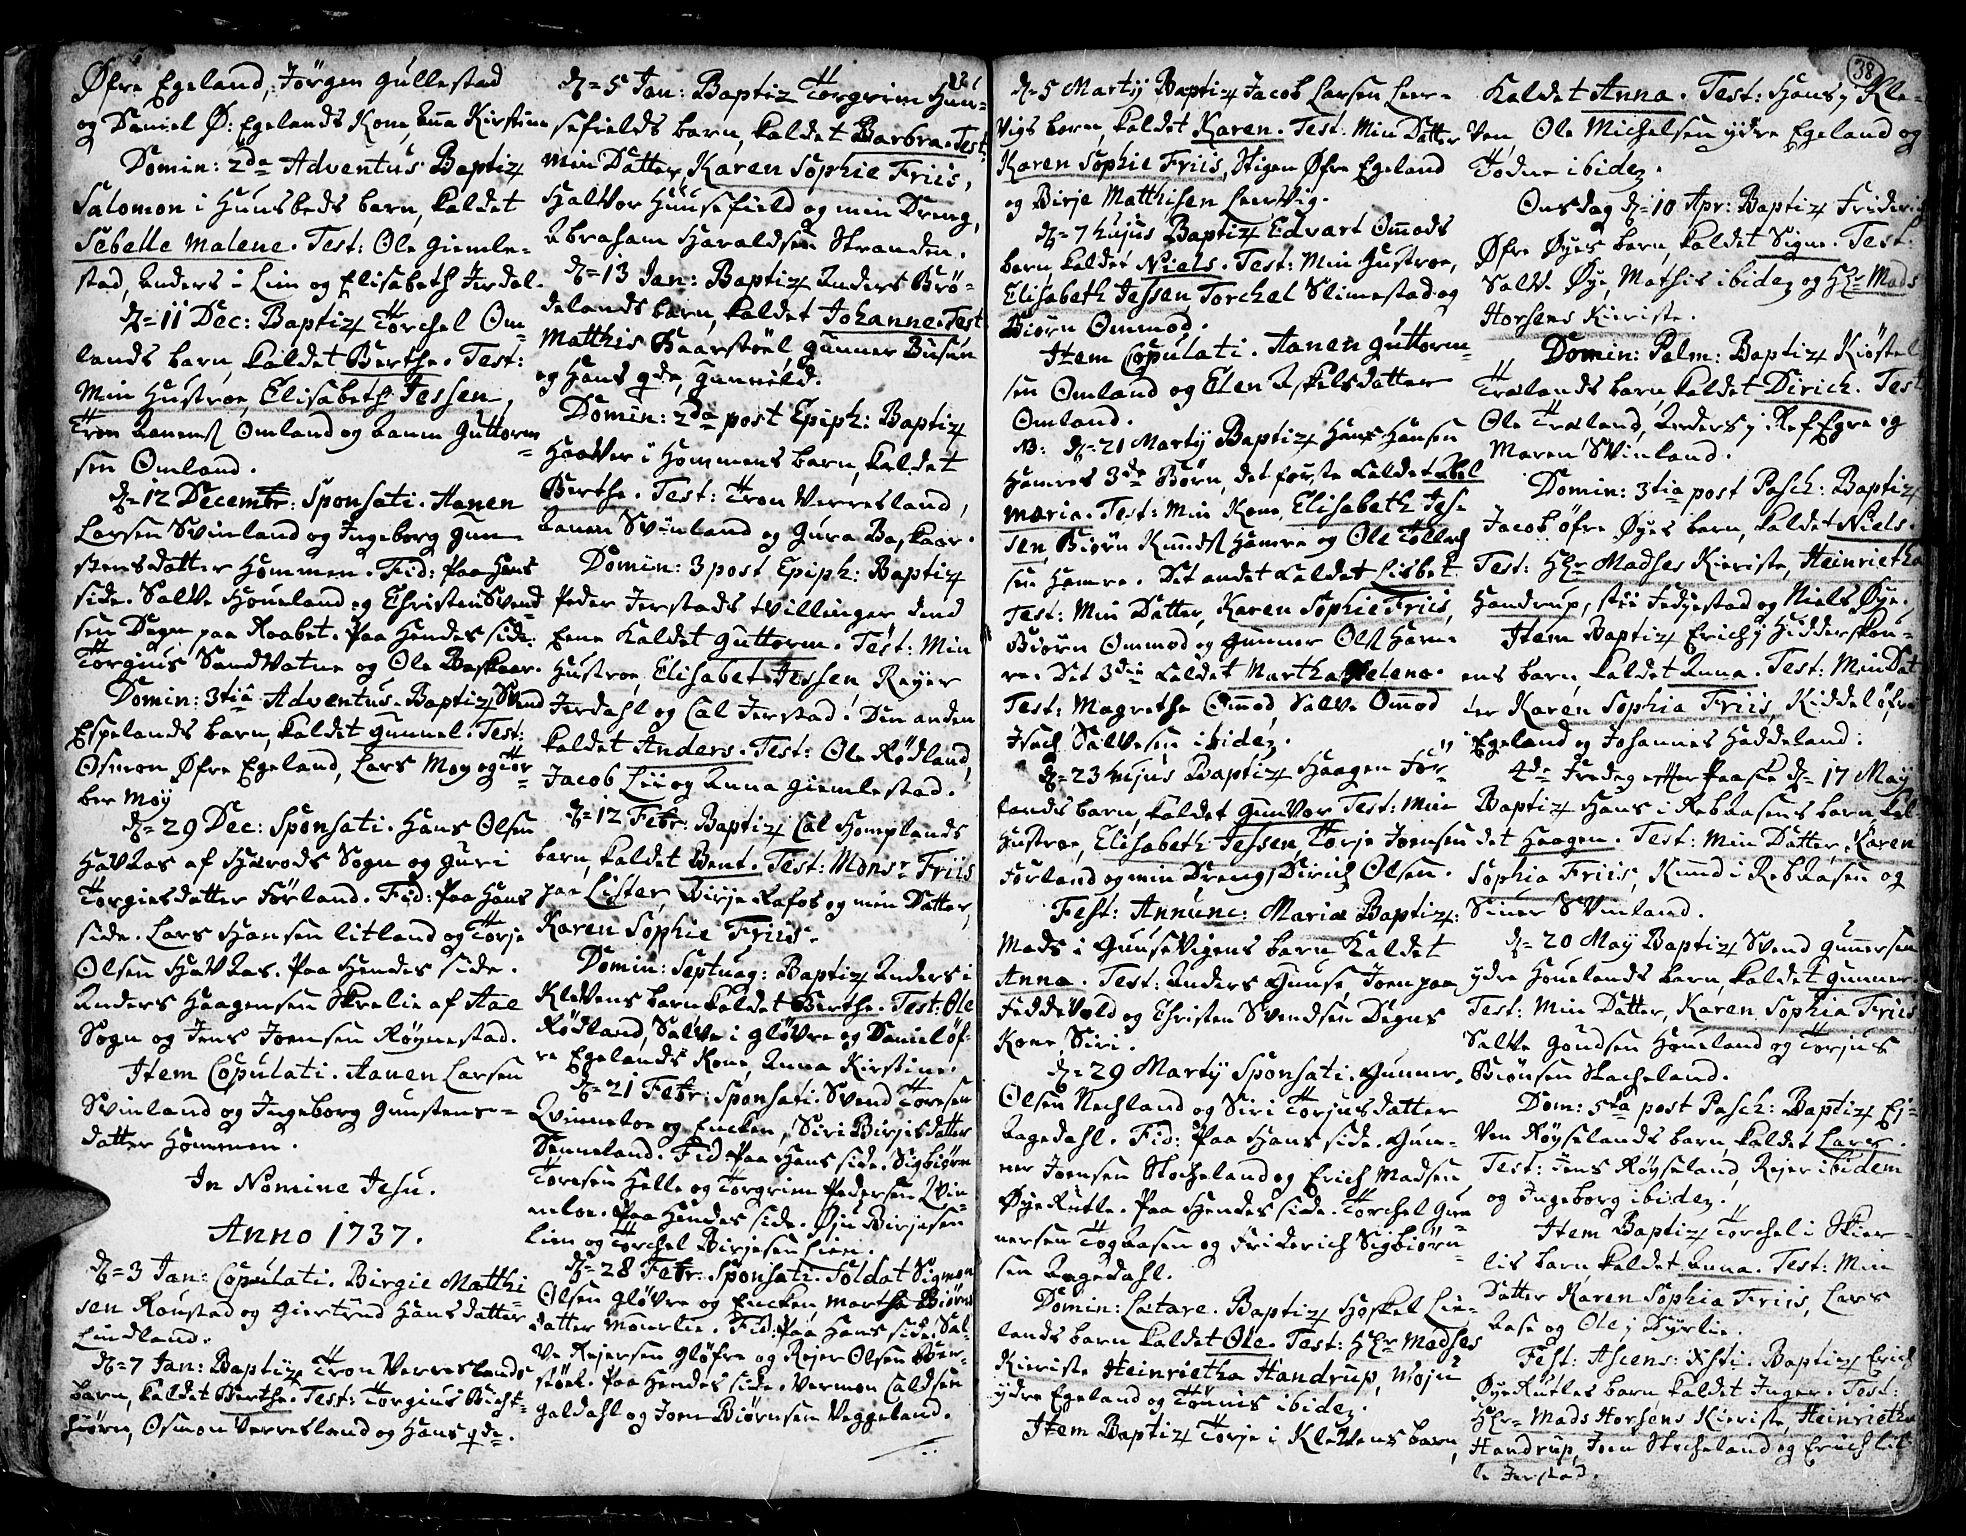 Øfre Egeland, Jörgen Gullestad
og Daniel Ø: Egelands Kone, Ana Kirstine
Domin: 2da Adventus Baptiz
Salomon i Hunsbeds barn, kaldet
Sebelle Malene. Test: Ole Giemle-
stad, Anders i Liin og Elisabeth Jerdal.
d= 11 Dec: Baptiz Torchel Om-
lands barn, kaldet Berthe. Test:
Min Hustroe, Elisabeth Jessen,
Tron Aanens Omland og Aanen Guttorm-
sen Omland.
d= 12 Decembr: Sponsati. Aanen
Larsen Svinland og Ingeborg Gun-
stensdatter Hommen. Fid: Paa Hans
side. Salve Houeland og Christen Svend
sen Degn paa Raabet. Paa Hendes side.
Torgius Sandvatne og Ole Baskaar.
Domin: 3tia Adventus. Baptiz Svend
Espelands barn, kaldet Gunnel. Test:
Osmon Øfre Egeland, Lars Moy og Tor-
ber Moy
d= 29 Dec: Sponsati. Hans Olsen
Havaas af Herods Sogn og Guri
Torgiesdatter Förland. Fid: Paa Hans
side. Lars Hansen Litland og Torje
Olsen Havaas. Paa Hendes side.
Anders Haagensen Skrelie af Aae
Sogn og Jens Joensen Röynestad.
Item Copulati. Aanen Larsen
Svinland og Ingeborg Gunstens-
datter Hommen.
In Nomine Jesu.
Anno 1737.
d= 3 Jan: Copulati. Birgie Matthi-
sen Roustad og Giertrud Hansdatter
Lindland.
d= 7 Jan: Baptiz Tron Verreslands
barn, kaldet Berthe. Test: Torgius Bicht-
hiörn, Osmon Verresland og Hans qde.
d= 5 Jan: Baptiz Torgrim Huu-
sefields barn, kaldet Barbra. Test:
Min Datter, Karen Sophie Friis,
Halvor Huusefield og min Dreng,
Abraham Haraldsen Stranden.
d= 13 Jan: Baptiz Anders Brö-
delands barn, kaldet Johanne. Test
Matthis Haarstöel, Gunner Busun
og Hans qde, Gunnild.
Domin: 2da post Epiph: Baptiz
Haaver i Hommens barn, kaldet
Berthe. Test: Tron Verresland,
Aanen Svinland og Gura Baskaar.
Domin: 3 post Epiph: Baptiz
Peder Jerstads tvillinger, dend
Eene Kaldet Guttorm. Test: Min
Hustroe, Elisabet Jessen Reyer
Jerdahl og Cal Jerstad. Den anden
kaldet Anders. Test: Ole Rödland,
Jacob Lii og Anna Giemlestad.
d= 12 Febr: Baptiz Cal Homplands
barn, kaldet Bent. Test: Monsr Friis
paa Lister, Birje Rafos og min Datter,
Karen Sophie Friis.
Domin: Septuag: Baptiz Anders i
Klevens barn kaldet Berthe. Test: Ole
Rödland, Salve i Glövre og Daniel öf-
re Egelands Kone, Anna Kirstine.
d= 21 Febr: Sponsati. Svend Toresen
Qvinneloe og Encken, Siri Birjesdatter
Senneland. Fid Paa Hans side. Sigbiörn
Toresen Helle og Torgrim Pedersen Qvin-
neloe. Paa Hendes side. Oju Birjesen
Liin og Torchel Birjesen Lien.
d= 28 Febr: Sponsati. Soldat Sigmon
Olsen Glövre og Encken Martha Biörns
datter Mourlie. Fid: Paa Hans side. Sal-
ve Rejersen Glöfre og Rejer Olsen Beer-
stöel. Paa Hendes side. Vermon Caldsen
Galdahl og Joen Biörnsen Veggeland.
d= 5 Martÿ Baptiz Jacob Larsen Leer-
vigs barn, kaldet Karen. Test: Min Datter
Karen Sophie Friis, Stigen Øfre Egeland
og Birje Matthisen Leervig.
d= 7 hujus Baptiz Edvart Omods
barn, kaldet Niels. Test: Min Hustroe,
Elisabeth Jessen Torchel Slimestad og
Biörn Ommod.
Item Copulati. Aanen Guttorm-
sen Omland og Elen Askelsdatter
Omland.
N: d= 21 Martÿ Baptiz Hans Hansen
Hamres 3de Börn, det forste kaldet Abel
Maria. Test: Min Kone, Elisabeth Jes-
sen, Biörn Knudss Hamre og Ole Tollach
sen Hamre. Det andet kaldet Lisbet.
Test: Min Datter, Karen Sophie Friis,
Biörn Ommod og Gunner Olss Ham-
re. Det 3die kaldet Martha Helena.
Test: Magrethe Omod, Salve Omod
Isach Salvesen ibidem.
d= 23 hujus Baptiz Haagen För-
lands barn, kaldet Gunvor Test: Min
Hustroe, Elisabeth Jessen, Torje Joensen
Förland og min Dreng, Dirich Olsen.
Fest: Annunc: Mariæ Baptiz:
Mads i Guusevigens barn kaldet
Anna. Test: Anders Guuse, Joen paa
Feddevold og Christen Svendsen Degns
Kone, Siri.
d= 29 Martÿ Sponsati. Gunner
Olsen Nechland og Siri Torjusdatter
Aagedahl. Fid: Paa Hans side. Gun-
ner Joensen Stocheland og Erich Madsen
Øye Rutle. Paa Hendes side. Torchel Gun-
nersen Togaasen og Friderich Sigbiörn-
sen Aagedahl.
Domin: Lætare. Baptiz Hoskel Lin-
lands barn kaldet Ole. Test: Hr Madses
Kieriste Heinrietha Handrup, Moju
ydre Egeland og Tönnis ibidem.
Item Baptiz Torje i Klevens barn,
38
Kaldet Anna. Test: Hans i Kle-
ven, Ole Michelsen ydre Egeland og
Todne ibidem.
Onsdag d= 10 Apr: Baptiz Friderich
Øfre Øyes barn, kaldet Signe. Test:
Salve Øye, Mathis ibidem og Hr Mads
Horsens Kieriste.
Domin: Palm: Baptiz Kiöstel
Trælands barn, kaldet Dirich. Test
Ole Træland, Anders i Refsegre og
Maren Svinland.
Domin: 3tia post Pasch: Baptiz
Jacob öfre Øyes barn, kaldet Niels.
Test: Hr Madses Kieriste, Heinrietha
Handrup, Stie Fedjestad og Niels Øye.
Item Baptiz Erich i Hidderskou-
ens barn, kaldet Anna. Test: Min Dat
ter Karen Sophia Friis, Kiddel öfre
Egeland og Johannes Haddeland.
4de Fredag efter Paaske d= 17 May
Baptiz Hans i Rebaasens barn, kal-
det Haagen. Test: Min Datter, Karen
Sophia Friis, Knud i Rebaasen og
Siner Svinland.
d= 20 May Baptiz Svend Gunnersen
ydre Houelands barn, kaldet Gunner.
Test: Min Datter, Karen Sophia Friis
Salve Goudsen Houeland og Torjus
Biönsen Stacheland.
Dom: 5ta post Pasch: Baptiz Ej-
ven Röyselands barn, kaldet Lars.
Test: Jens Röyseland, Rejer ibidem
og Ingeborg ibidem.
Item Baptiz Torchel i Skier-
lis barn kaldet Anna. Test: Min
Datter Karen Sophia Friis, Lars
Aase og Ole i Dyrlie.
Fest: Ascens: Xsti. Baptiz Erich
Øye Rutles barn kaldet Inger. Test:
Hr Mads Horsens Kieriste, Heinrietha
Handrup, Joen Stocheland og Erich lil-
le Jerstad.